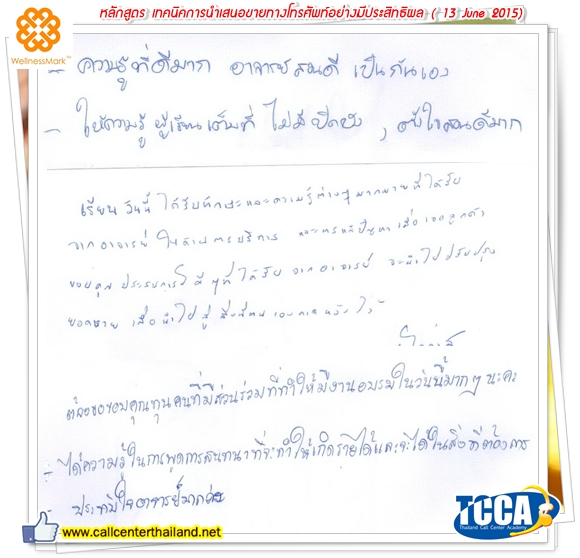 หลักสูตร เทคนิคการนำเสนอขายทางโทรศัพท์อย่างมีประสิทธิผล ( 13 June 2015)
WellnessMark™
- ความรู้ที่ดีมาก อาจารย์สอนดี เป็นกันเอง
- ให้ความรู้ ผู้เรียนเต็มที่ ไม่มีปิดบัง , ตั้งใจสอนดีมาก
เรียน วันนี้ ได้รับทักษะและความรู้ต่างๆมากมายที่ได้รับ
จาก อาจารย์ ในด้านการบริการ และการแก้ปัญหา เมื่อ เจอลูกค้า
ขอบคุณ ประสบการณ์ ดี ๆที่ ได้รับ จาก อาจารย์ จะนำไป ปรับปรุง
ยอดขาย เพื่อ นำไป สู่ สิ่งที่ตนเองคาดหวังไว้
ต้องขอขอบคุณทุกคนที่มีส่วนร่วมที่ทำให้มีงานอบรมในวันนี้มากๆ นะคะ
- ได้ความรู้ในการพูดการสนทนาที่จะทำให้เกิดรายได้และจะได้ในสิ่งที่ต้องการ
- ประทับใจอาจารย์มากค่ะ
www.callcenterthailand.net
TCCA
Thailand Call Center Academy